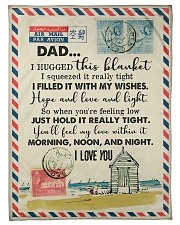 AIR MAIL
PAR AVION
DAD...
I HUGGED this blanket
I squeezed it really tight
I FILLED IT WITH MY WISHES.
Hope and love and light.
So when you're feeling low
JUST HOLD IT REALLY TIGHT.
You'll feel my love within it
MORNING, NOON, AND NIGHT.
I LOVE YOU